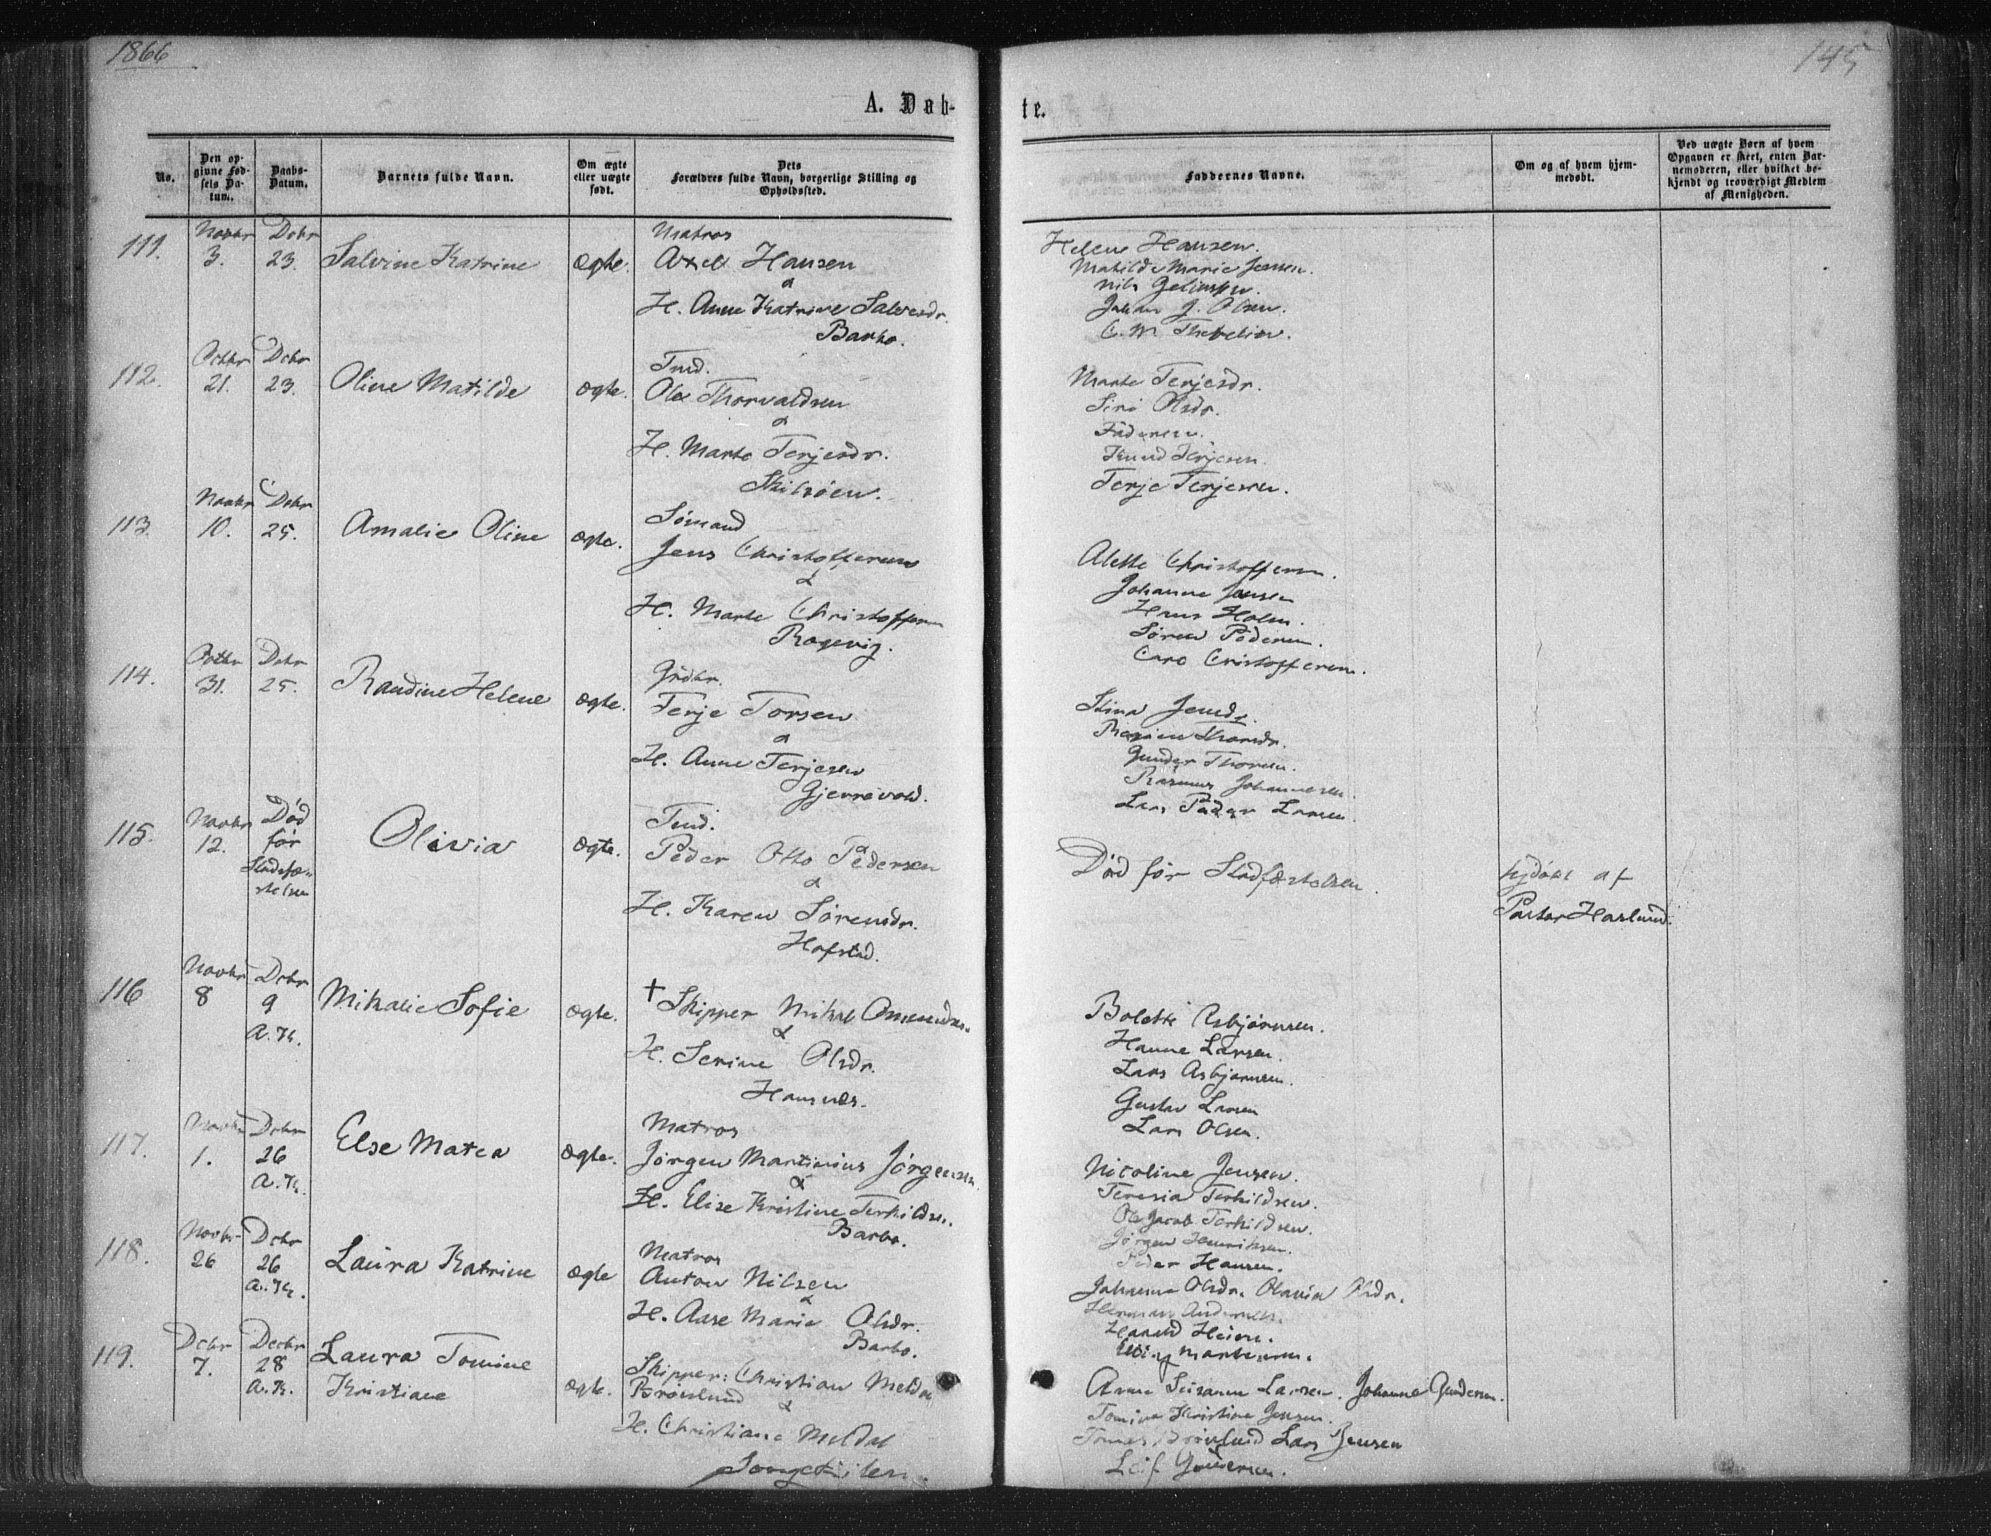 1866
145
A. Døb-
te.
No.
Den op-
givne Fød-
sels Da-
tum.
Daabs-
Datum.
Barnets fulde Navn.
Om ægte
eller uægte
født.
Dets
Forældres fulde Navn, borgerlige Stilling og
Opholdssted.
Faddernes Navne.
Om og af hvem hjem-
medøbt.
Ved uægte Børn af hvem
Opgaven er skeet, enten Bar-
nemoderen, eller hvilket be-
kjendt og troværdigt Medlem
af Menigheden.
111.
Novbr
3.
Dcbr
23.
Salvine Katrine
ægte.
Matros
Axel Hansen
&
H. Anne Katrine Salvesdr.
Barbo.
Helene Hansen.
Matilde Marie Jensen.
Nils
Johan J. Olsen.
C. M.
112.
Octbr
21.
Dcbr
23.
Oline Matilde
ægte.
Tmd.
Ole Thorvaldsen
&
H. Marte Terjesdr.
Skilsøen.
Marte Terjesdr.
Siri Olsdr.
Faderen.
Knud Terjesen.
Terje Terjesen.
113.
Novbr
10.
Dcbr
25.
Amalie Oline
ægte.
Sømand
Jens Christoffersen
&
H. Marte Christoffersen
Rægevig.
Alette Christoffersen.
Johanne Jensen
Hans Holm.
Søren Pedersen.
Caro Cristoffersen.
114.
Octbr
31.
Dcbr
25.
Randine Helene
ægte.
Grdbr.
Terje Torsen
&
H. Anne Terjesen
Gjerrevold.
Stina Jensdr.
Thorsdr.
Gunder Thorsen.
Rasmus Johannesen.
Lars Peder Larsen.
115.
Novbr
12.
Død
før
Stadfæ-
stelsen
Olivia
ægte.
Tmd.
Peder Otto Pedersen
&
H. Karen Sørensdr.
Hofstad.
Død før Stadfæstelsen.
hjdøbt af
Pastor Haslund.
116
Novbr
8
Dcbr
9
A. K.
Mikalie Sofie
ægte.
+ Skipper Mikal Omundsen
&
H. Serine Olsdr.
Hansnæs.
Bolette Asbjørnsen.
Hanne Larsen.
Lars Asbjørnsen.
Gustav Larsen
Lars Olsen.
117.
Novbr
1.
Dcbr
26
A. K.
Else Matea
ægte.
Matros
Jørgen Martinius Jørgensen.
&
H. Elise Kristine Terkildsen.
Barbo.
Nicoline Jensen.
Teresia Terkildsen.
Ole Jacob Terkildsen.
Jørgen Henriksen.
Peder Hansen.
118.
Novbr
26
Dcbr
26
A. K.
Laura Katrine
ægte
Matros
Anton Nilsen
&
H. Aase Marie Olsdr.
Barbo.
Johanne Olsdr. Olavia Olsdr.
Herman Andersen.
Harald Heien.
119.
Dcbr
7.
Decbr
28
A. K.
Laura Tomine
Kristiane
ægte.
Skipper: Christian Meldal
Brøvlund
&
H. Christiane Meldal
Songekilen.
Anne Susanne Larsen. Johanne Gundersen.
Tomine Kristine Jensen.
Tomas Brøvlund Lars Jensen
Leif Gundersen.